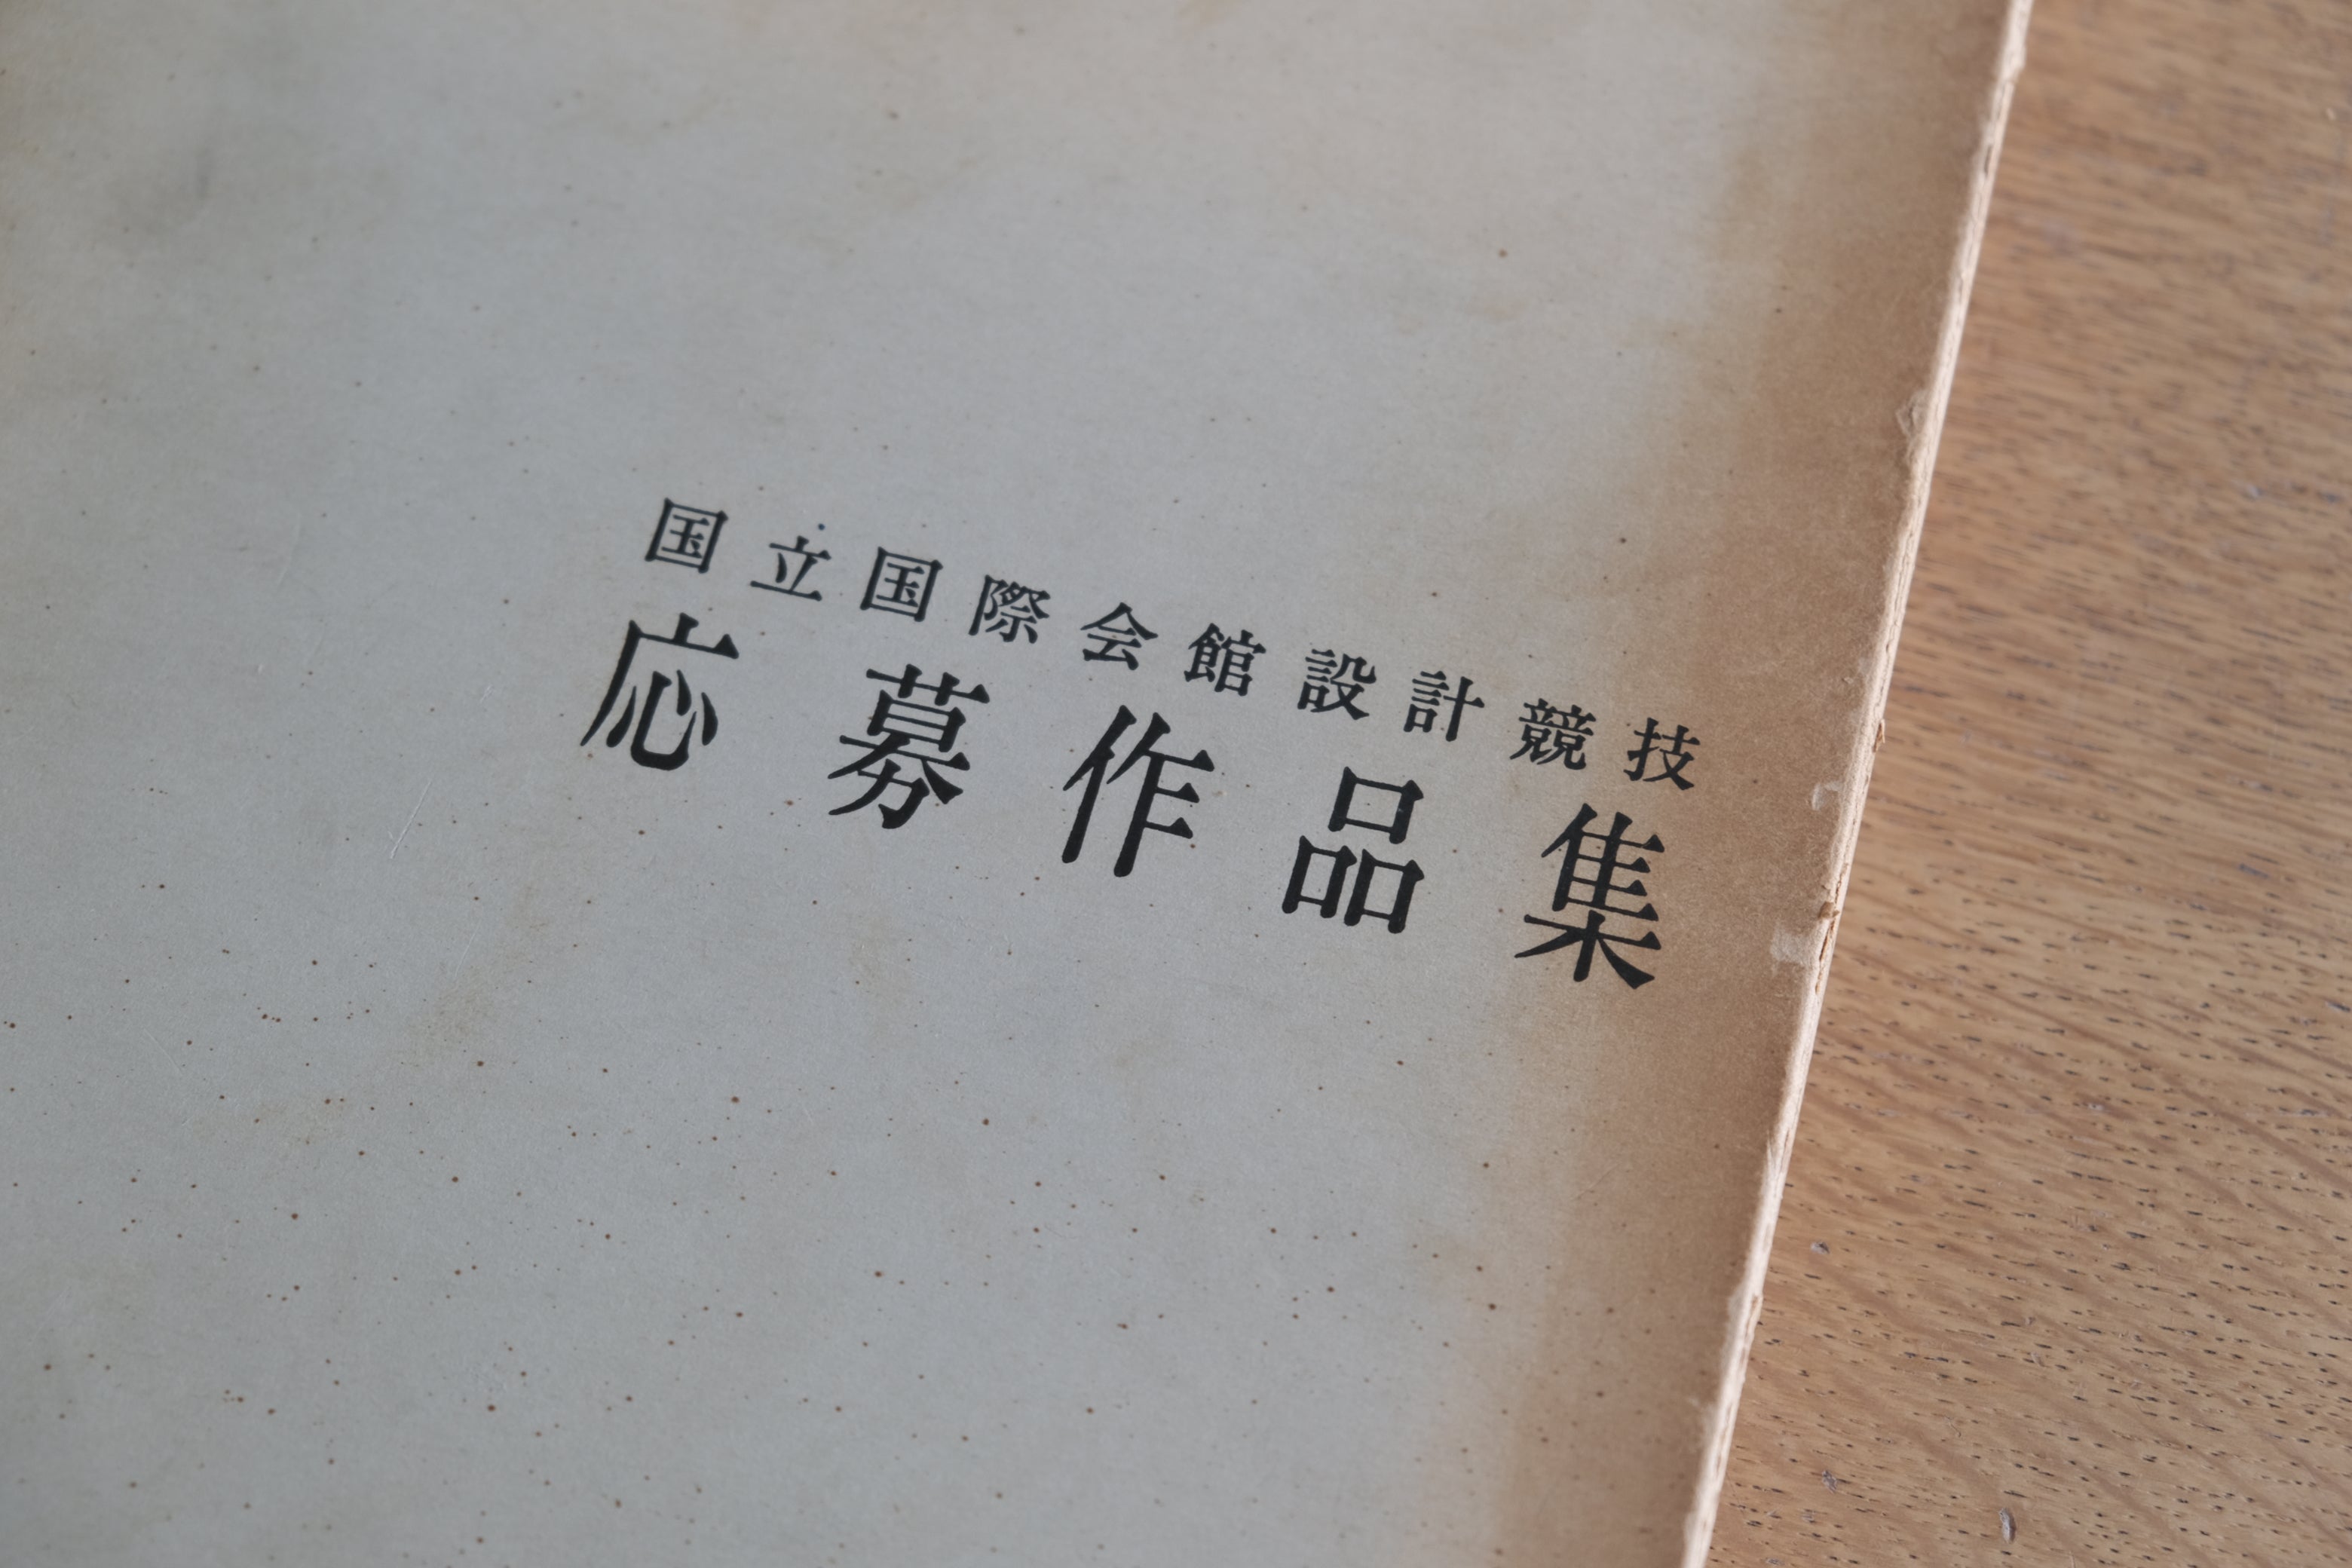 国立国際会館設計競技
応募作品集